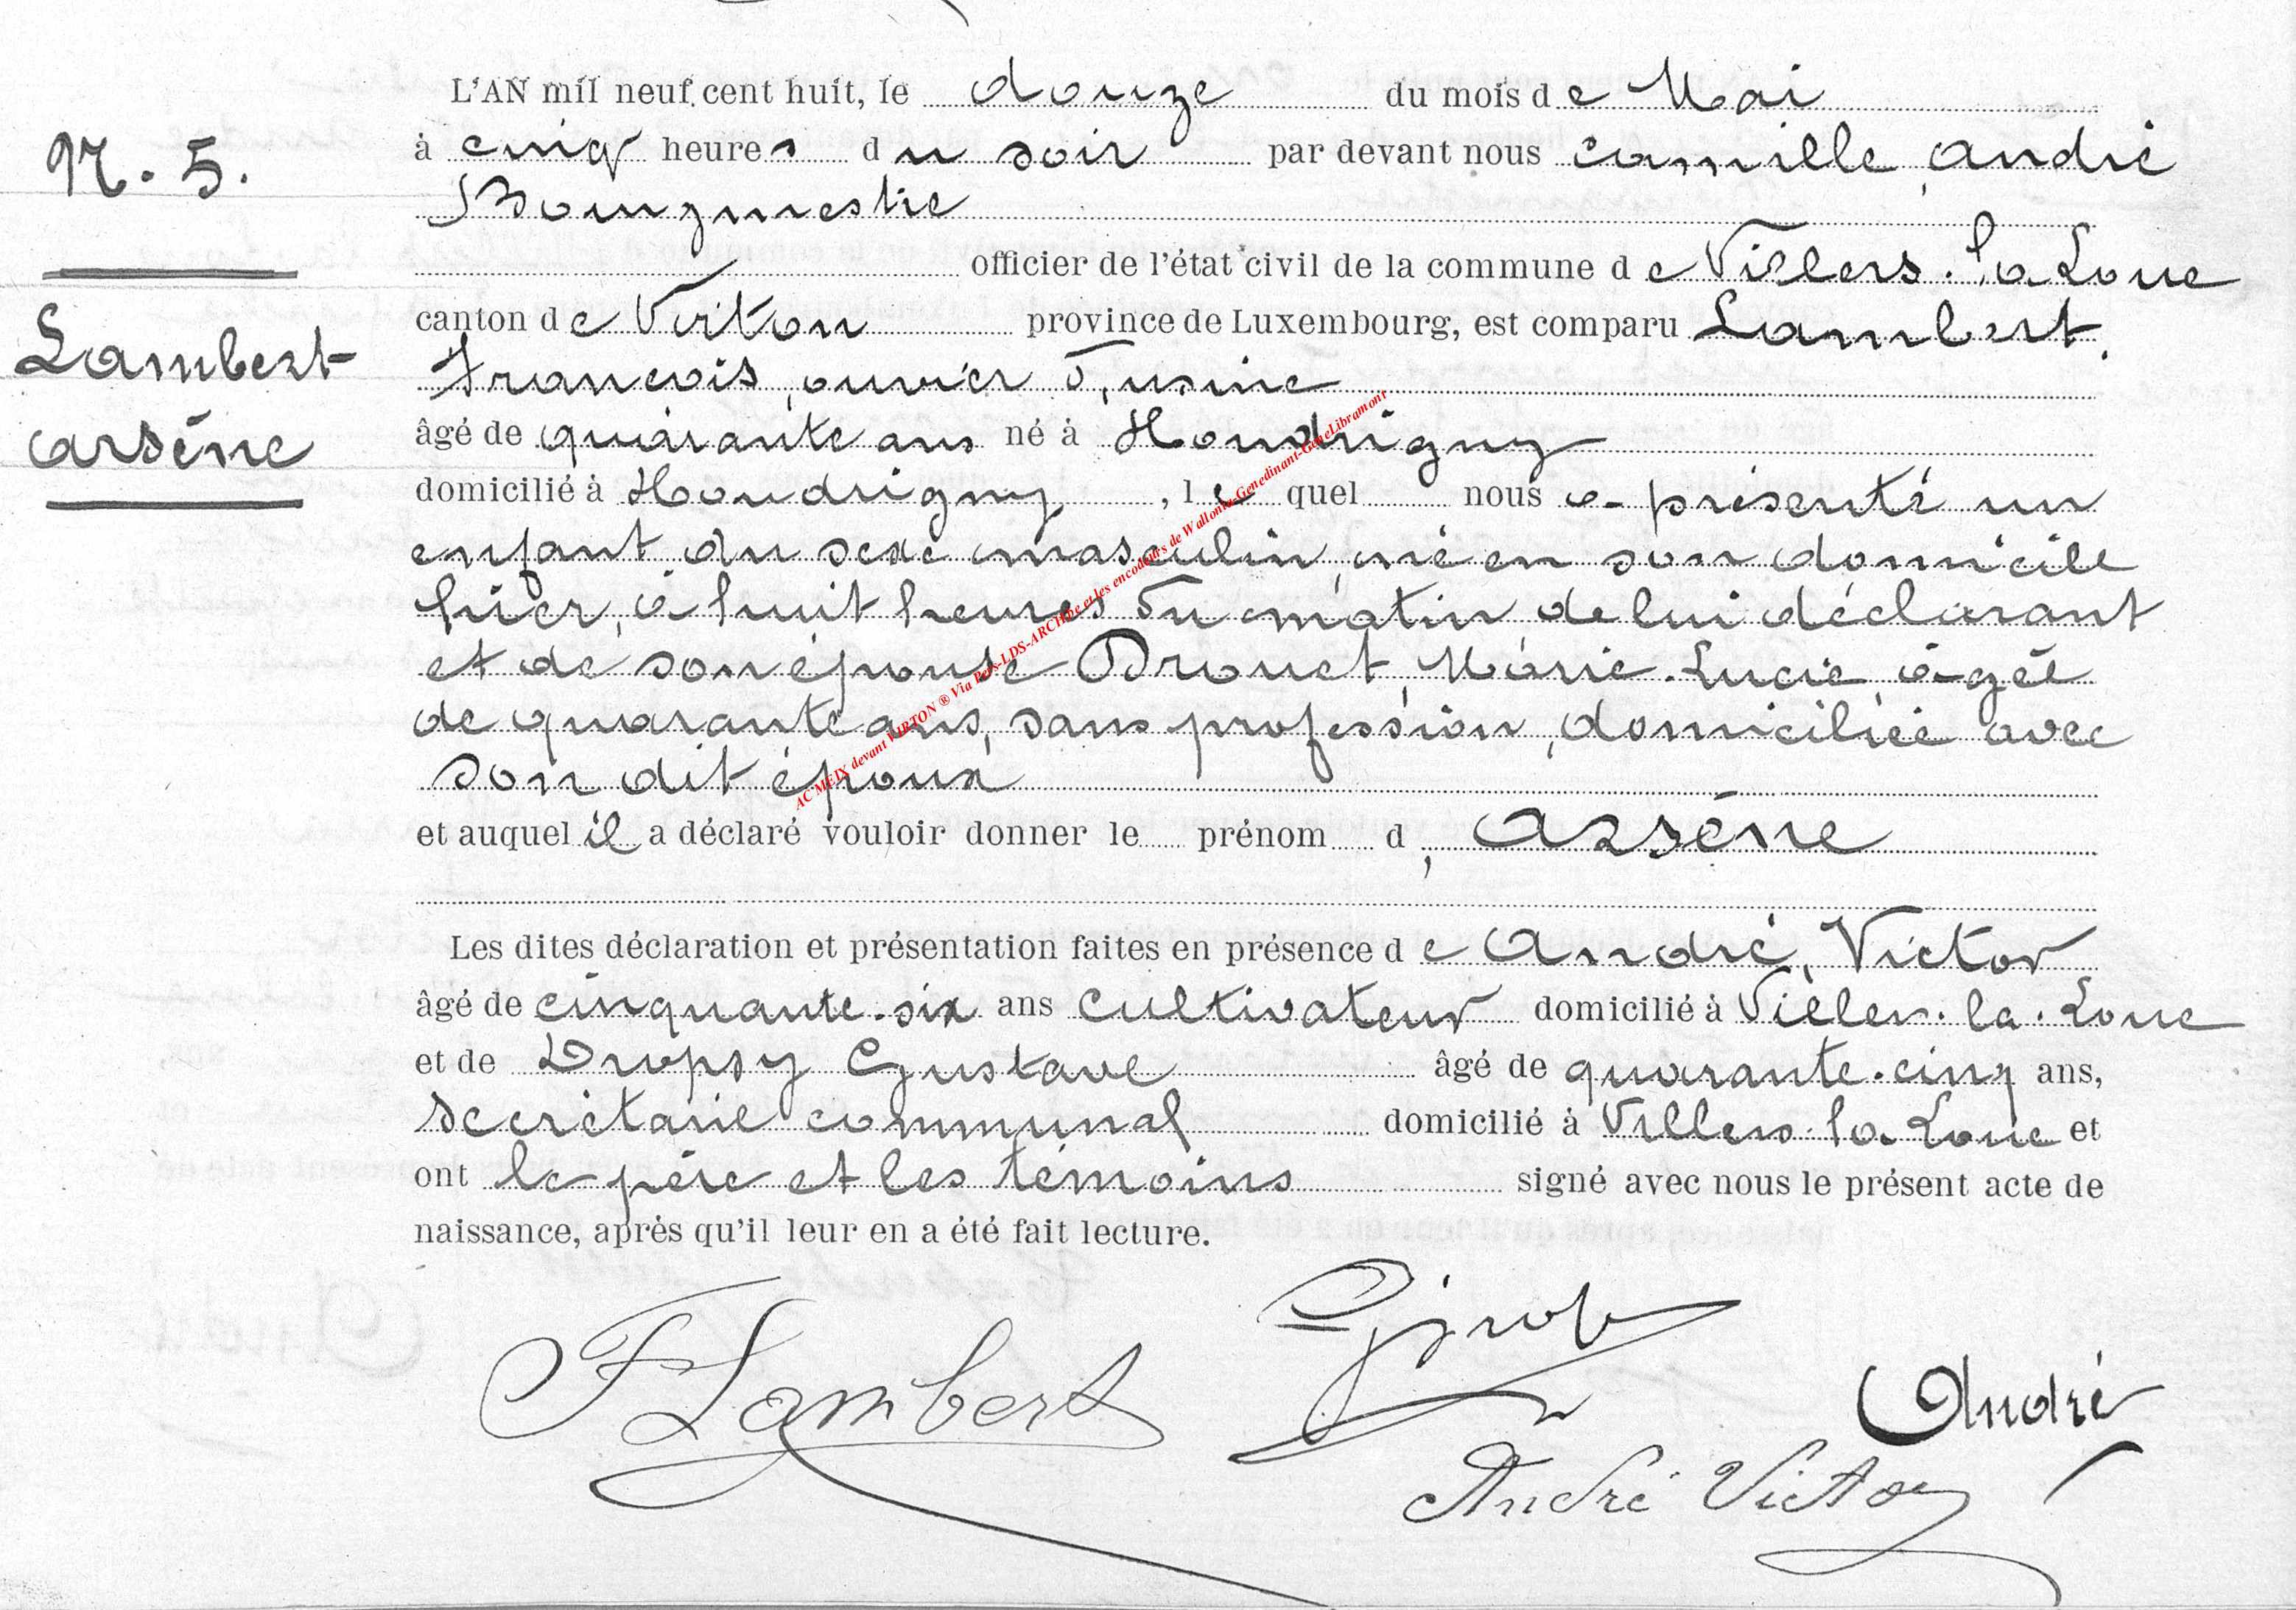 L'AN mil neuf cent huit, le douze du mois de Mai
N. 5.
à cinq heures du soir par devant nous Camille, André
Bourgmestre
officier de l'état civil de la commune de Villers-la-Loue
canton de Virton province de Luxembourg, est comparu Lambert,
Lambert
Arsène
François, ouvrier d'usine
âgé de quarante ans né à Houdrigny
domicilié à Houdrigny, lequel nous a présenté un
enfant du sexe masculin, né en son domicile
hier, à huit heures du matin, de lui déclarant
et de son épouse Drouet, Marie-Lucie, âgée
de quarante ans, sans profession, domiciliée avec
son dit époux
et auquel il a déclaré vouloir donner le prénom d'Arsène
Les dites déclaration et présentation faites en présence de André, Victor
âgé de cinquante-six ans cultivateur domicilié à Villers-la-Loue
et de Dropsy Gustave âgé de quarante-cinq ans,
secrétaire communal domicilié à Villers-la-Loue et
ont le père et les témoins signé avec nous le présent acte de
naissance, après qu'il leur en a été fait lecture.
F Lambert
André
André Victor
AC MEIX devant VIRTON ® Via Pers-LDS-ARCHive et les encodeurs de Wallonia-Genedinant-GeneLibramont